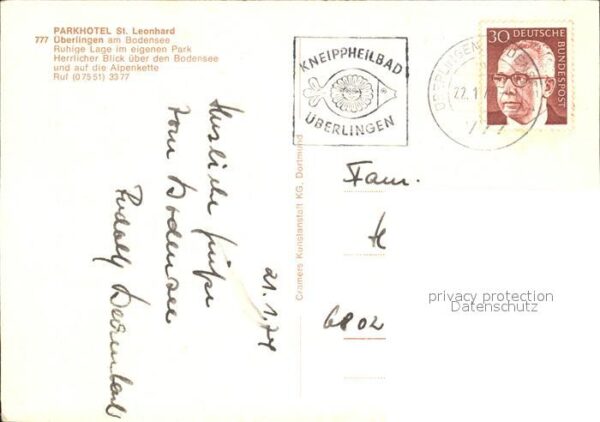 PARKHOTEL St. Leonhard
777 Überlingen am Bodensee
Ruhige Lage im eigenen Park
Herrlicher Blick über den Bodensee
und auf die Alpenkette
Ruf (07551) 3377
KNEIPPHEILBAD
ÜBERLINGEN
ÜBERLINGEN
22.1.7
777
30 DEUTSCHE
BUNDESPOST
Cramers Kunstanstalt KG, Dortmund
21.1.74
Herzliche Grüße
vom Bodensee
Rudolf
Fam.
6802
privacy protection
Datenschutz